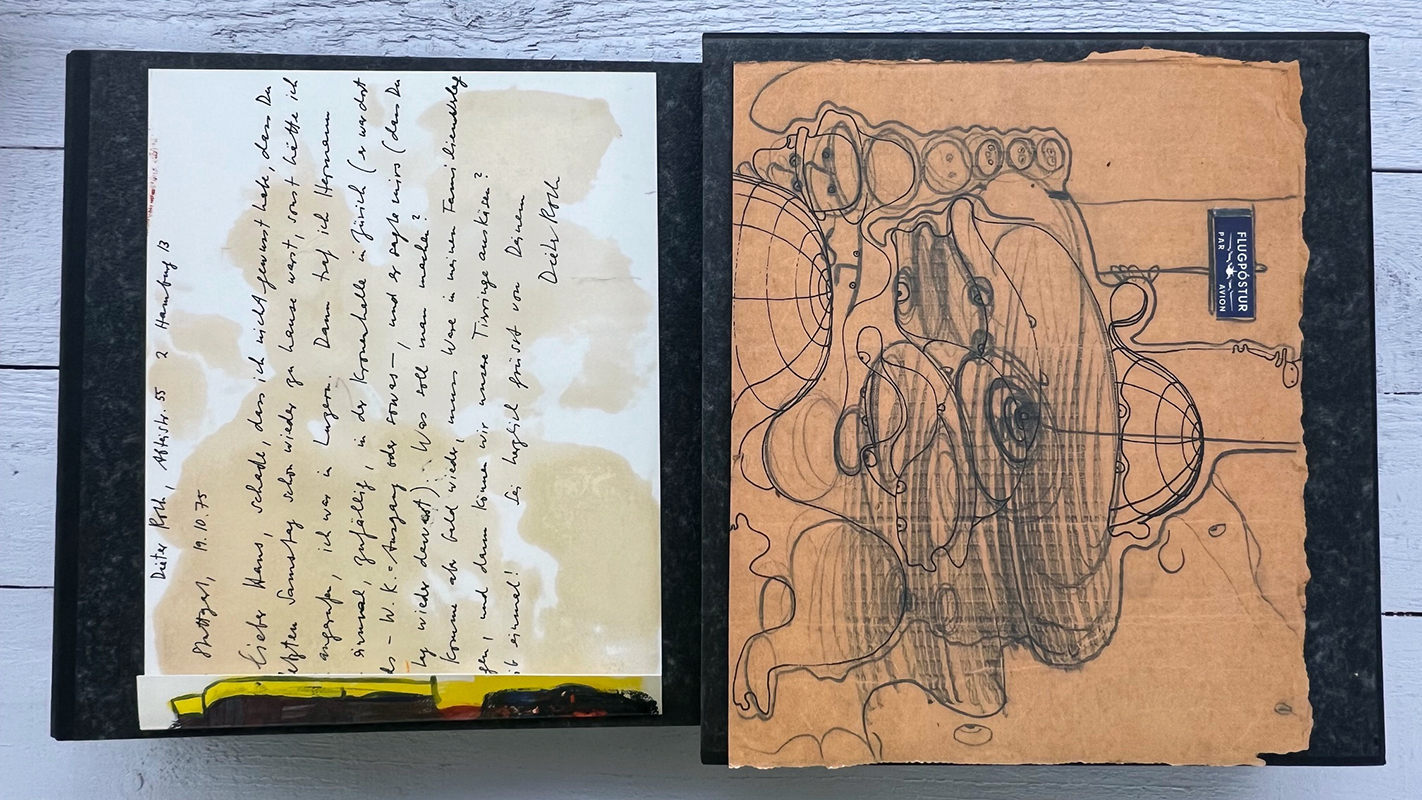 Dieter Roth, Abteistr. 55 2 Hamburg 13
Stuttgart, 19.10.75
Lieber Hans, schade, dass ich nicht gewusst habe, dass Du
letzten Samstag schon wieder zu hause warst, sonst hätte ich
angerufen, ich war in Luzern. Dann traf ich Hermann
einmal, zufällig, in der Kronenhalle in Zürich (es war dort
W.K.-Ausgang oder sowas–, und er sagte mirs (dass Du
wieder da warst). Was soll man machen?
Komme aber bald wieder, muss Ware in meinen
gen, und dann können wir unsere
einmal! Sei herzlich grüsst von Deinem
Dieter Roth
FLUGPÓSTUR
PAR AVION